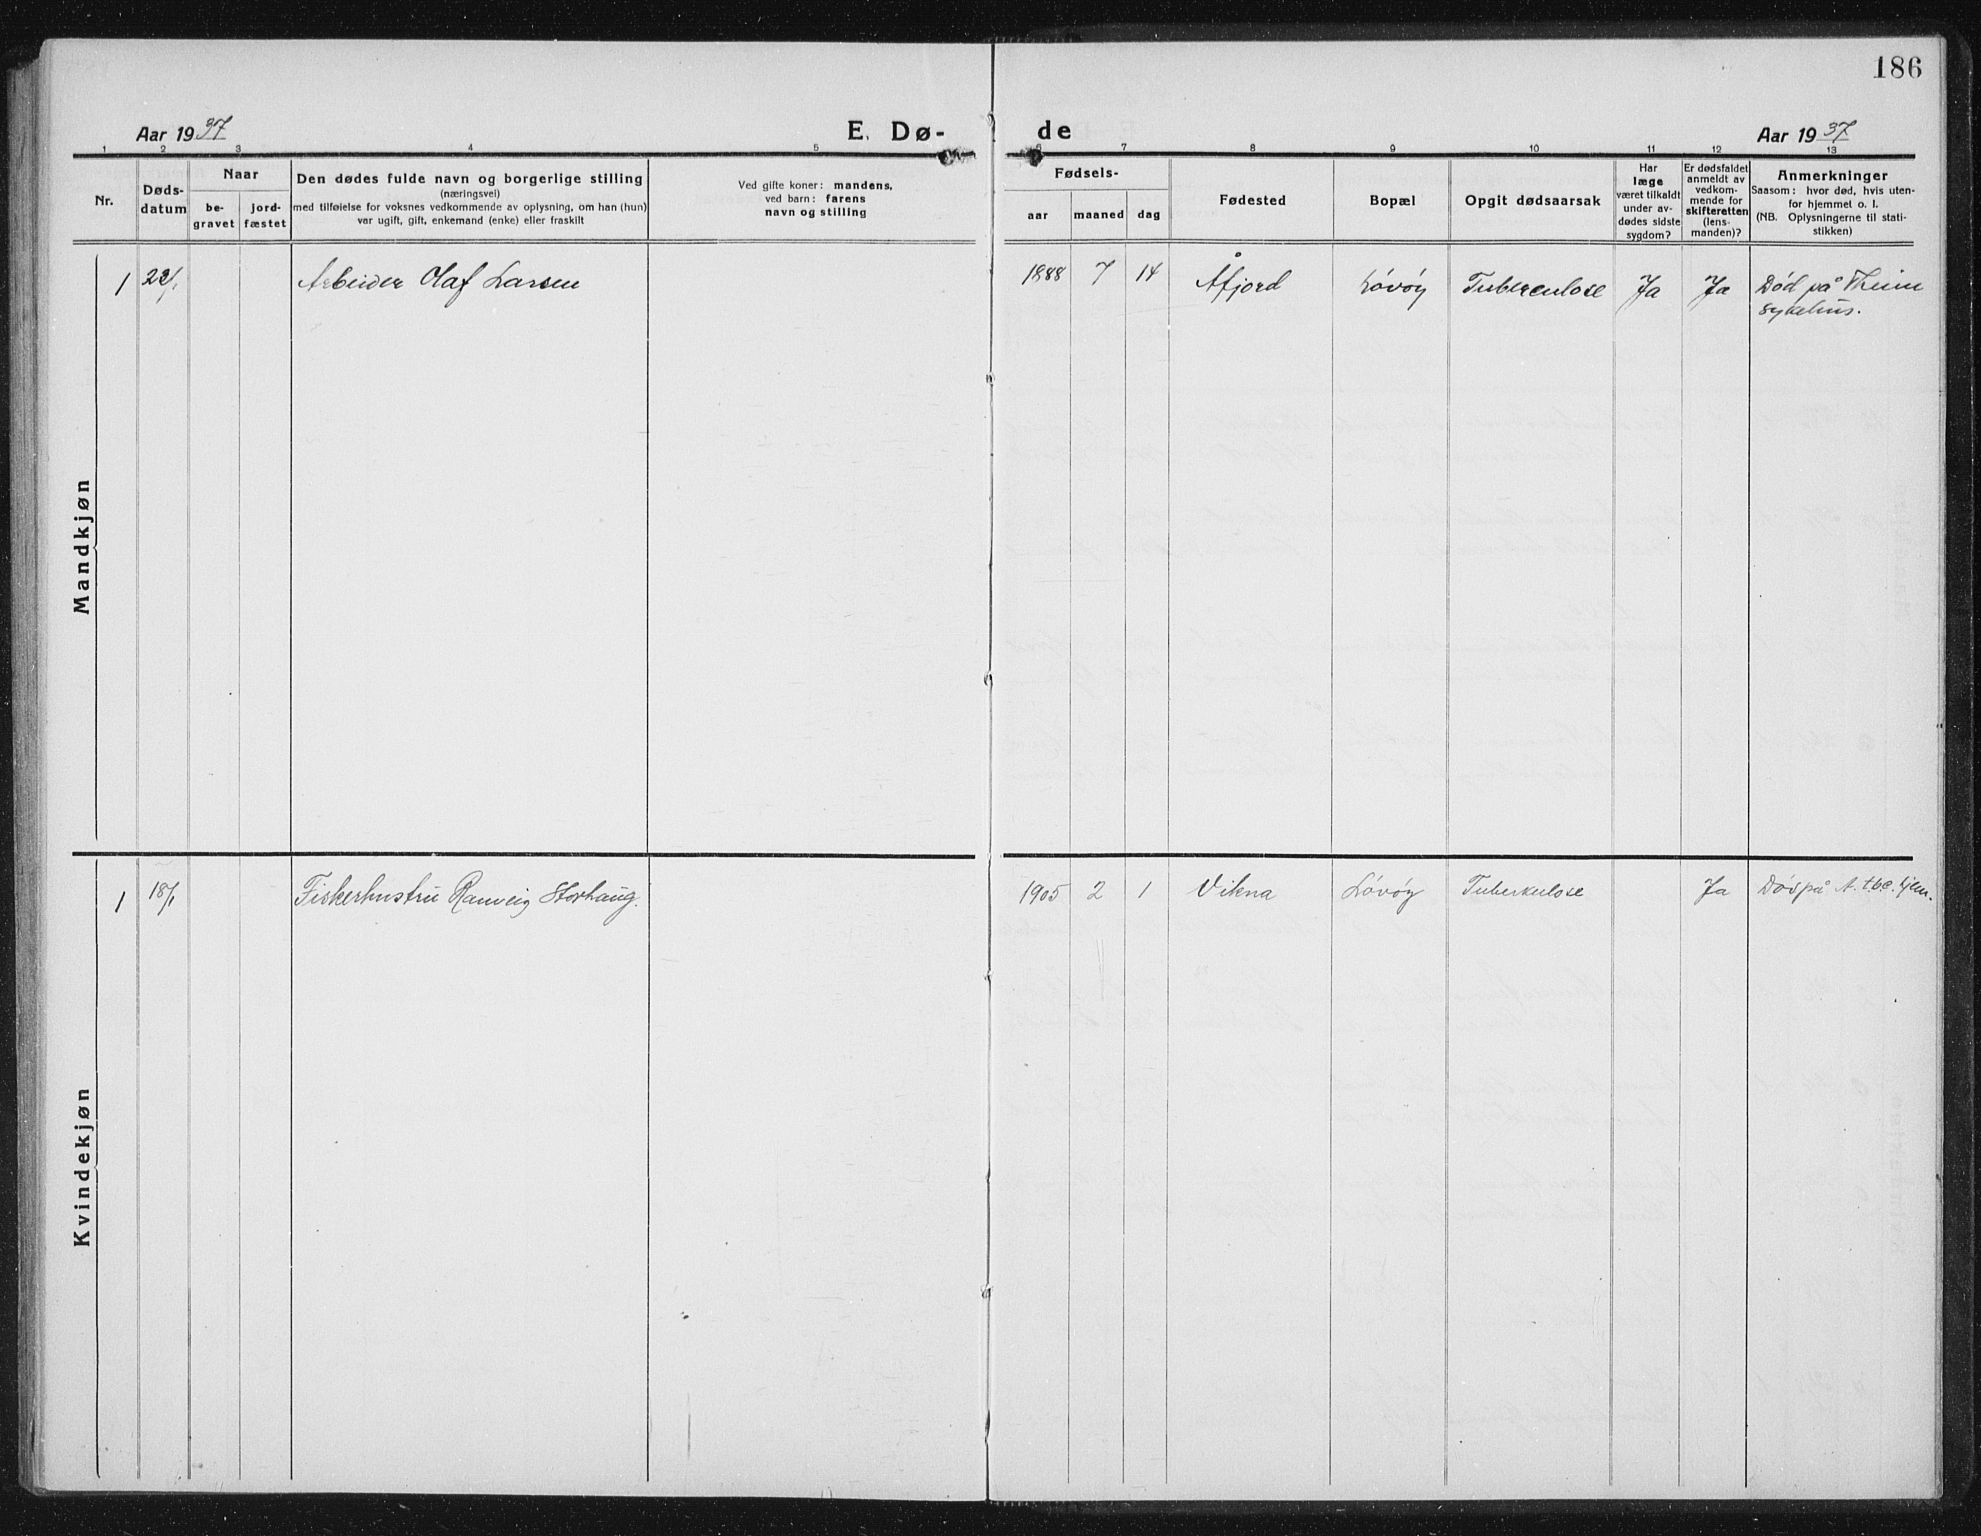 186
Aar 1937
E. Dø-
de
Aar 1937
1 2 3 4 5 6 7 8 9 10 11 12 13
Nr.
Døds-
datum
Naar
be-
gravet
jord-
fæstet
Den dødes fulde navn og borgerlige stilling
(næringsvei)
med tilføielse for voksnes vedkommende av oplysning, om han (hun)
var ugift, gift, enkemand (enke) eller fraskilt
Ved gifte koner: mandens,
ved barn: farens
navn og stilling
Fødsels-
aar maaned dag
Fødested
Bopæl
Opgit dødsaarsak
Har
læge
været tilkaldt
under av-
dødes sidste
sygdom?
Er dødsfaldet
anmeldt av
vedkom-
mende for
skifteretten
(lens-
manden)?
Anmerkninger
Saasom: hvor død, hvis uten-
for hjemmet o. l.
(NB. Oplysningerne til stati-
stikken)
Mandkjøn
1 22/1 Arbeider Olaf Larsen 1888 7 14 Åfjord Løvøy Tuberculose Ja Ja Død på Theim
sykehus.
Kvindekjøn
1 18/1 Fiskerhustru Ranveig Storhaug. 1905 2 1 Vikna Løvøy Tuberkulose Ja Død på N. tbc. hjem.